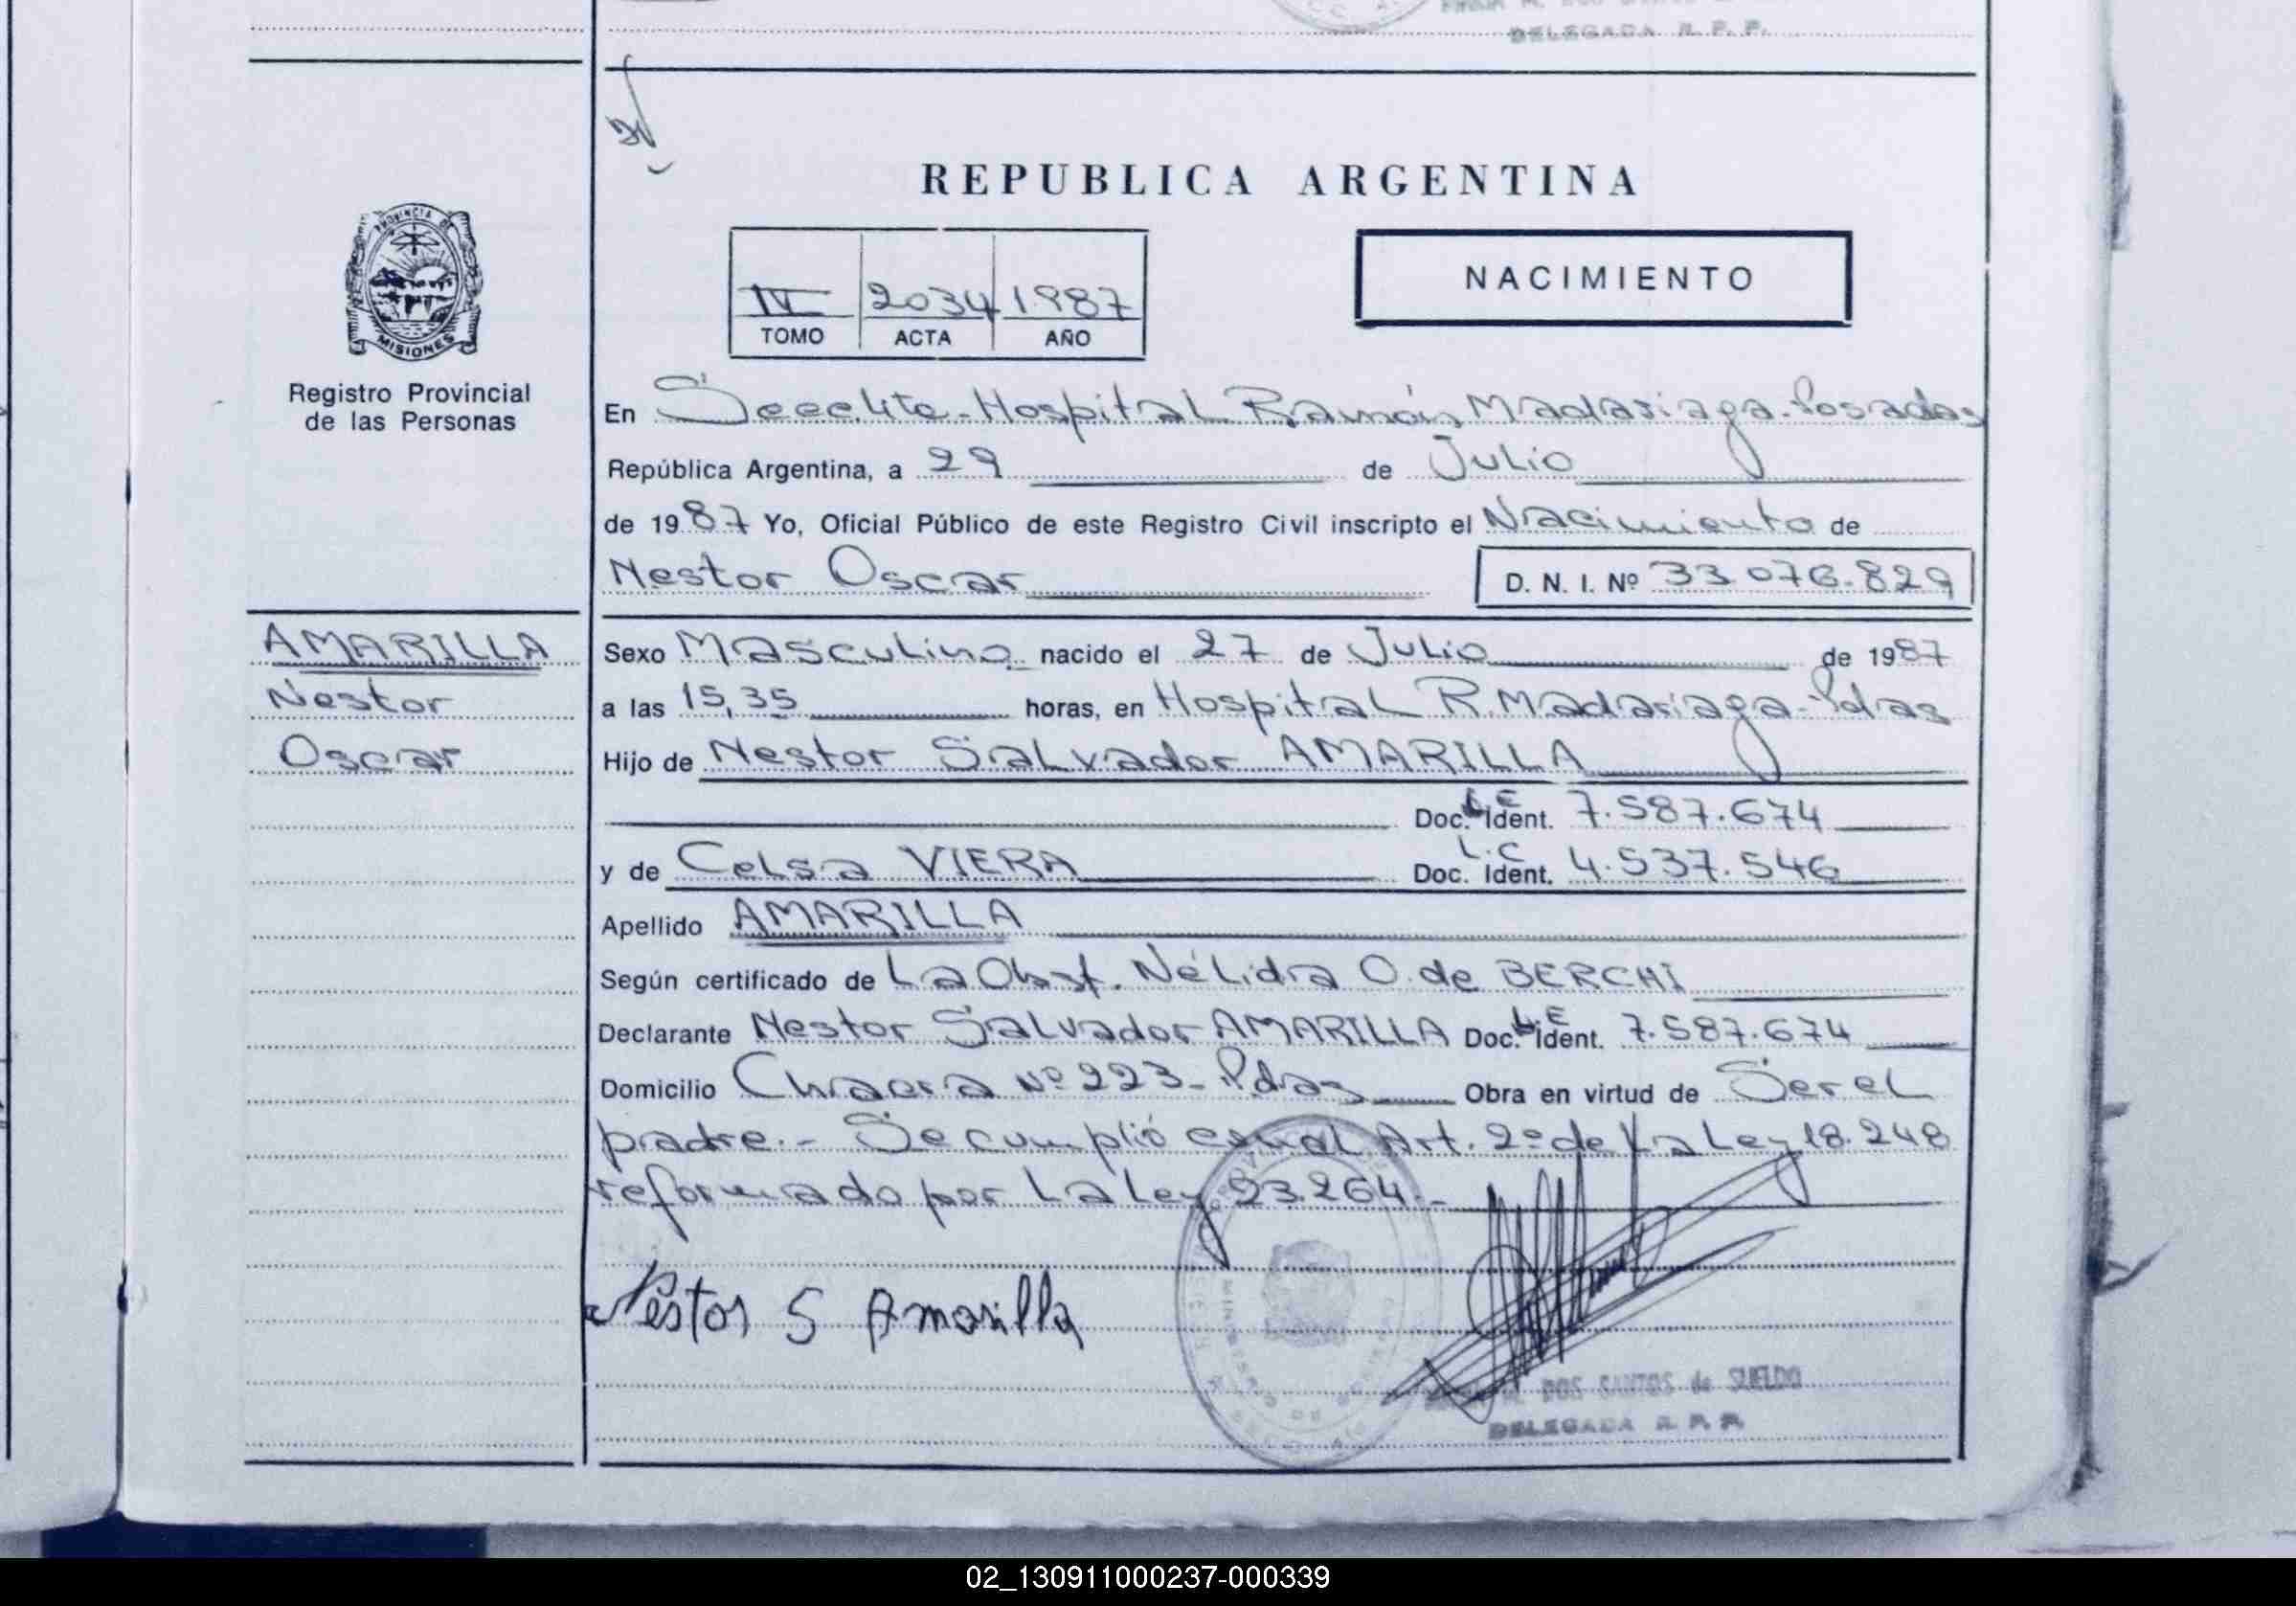 DELEGADA R. P. P.
REPUBLICA ARGENTINA
PROVINCIA DE
MISIONES
NACIMIENTO
IV 2034 1987
TOMO ACTA AÑO
Registro Provincial
de las Personas
En Hospital Ramón Madariaga - Posadas
República Argentina, a 29 de Julio
de 1987 Yo, Oficial Público de este Registro Civil inscripto el Nacimiento de
Nestor Oscar D. N. I. Nº 33 076.829
AMARILLA
Nestor
Oscar
Sexo Masculino nacido el 27 de Julio de 1987
a las 15,35 horas, en Hospital R. Madariaga - Pdas
Hijo de Nestor Salvador AMARILLA
Doc. L E Ident. 7.587.674
y de Celsa VIERA Doc. L.C Ident. 4.537.546
Apellido AMARILLA
Según certificado de La Obst. Nélida O. de BERCHI
Declarante Nestor Salvador AMARILLA Doc. L.E Ident. 7.587.674
Domicilio Chacra Nº 223 - Pdas Obra en virtud de Ser el
padre. - Se cumplió con el Art. 2º de La Ley 18.248
reformado por La Ley 23.264. -
Nestor S Amarilla
DOS SANTOS de SUELDO
DELEGADA R. P. P.
02_130911000237-000339